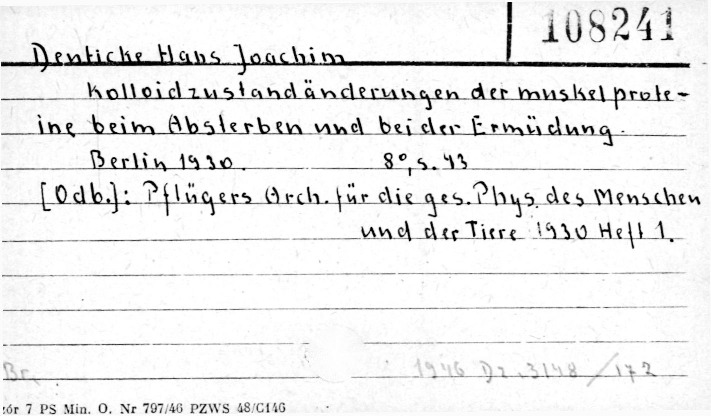 108241
Deuticke Hans Joachim
Kolloidzustandänderungen der muskelprote-
ine beim Absterben und bei der Ermüdung.
Berlin 1930. 8°, s. 43
[Odb.]: Pflügers Arch. für die ges. Phys. des Menschen
und der Tiere 1930 Heft 1.
Br. 1946 Dz. 3148/172
zór 7 PS Min. O. Nr 797/46 PZWS 48/C146